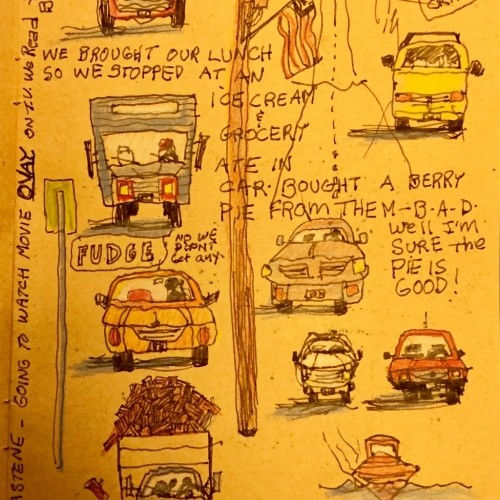 WE BROUGHT OUR LUNCH
SO WE STOPPED AT AN
ICE CREAM
&
GROCERY
ATE IN
CAR. BOUGHT A BERRY
PIE FROM THEM - B-A-D.
We'll I'M
SURE the
PIE IS
GOOD!
FUDGE
NO WE
DIDN'T
Get any.
ASTENE - GOING TO WATCH MOVIE OVAY ON T.V. We Read